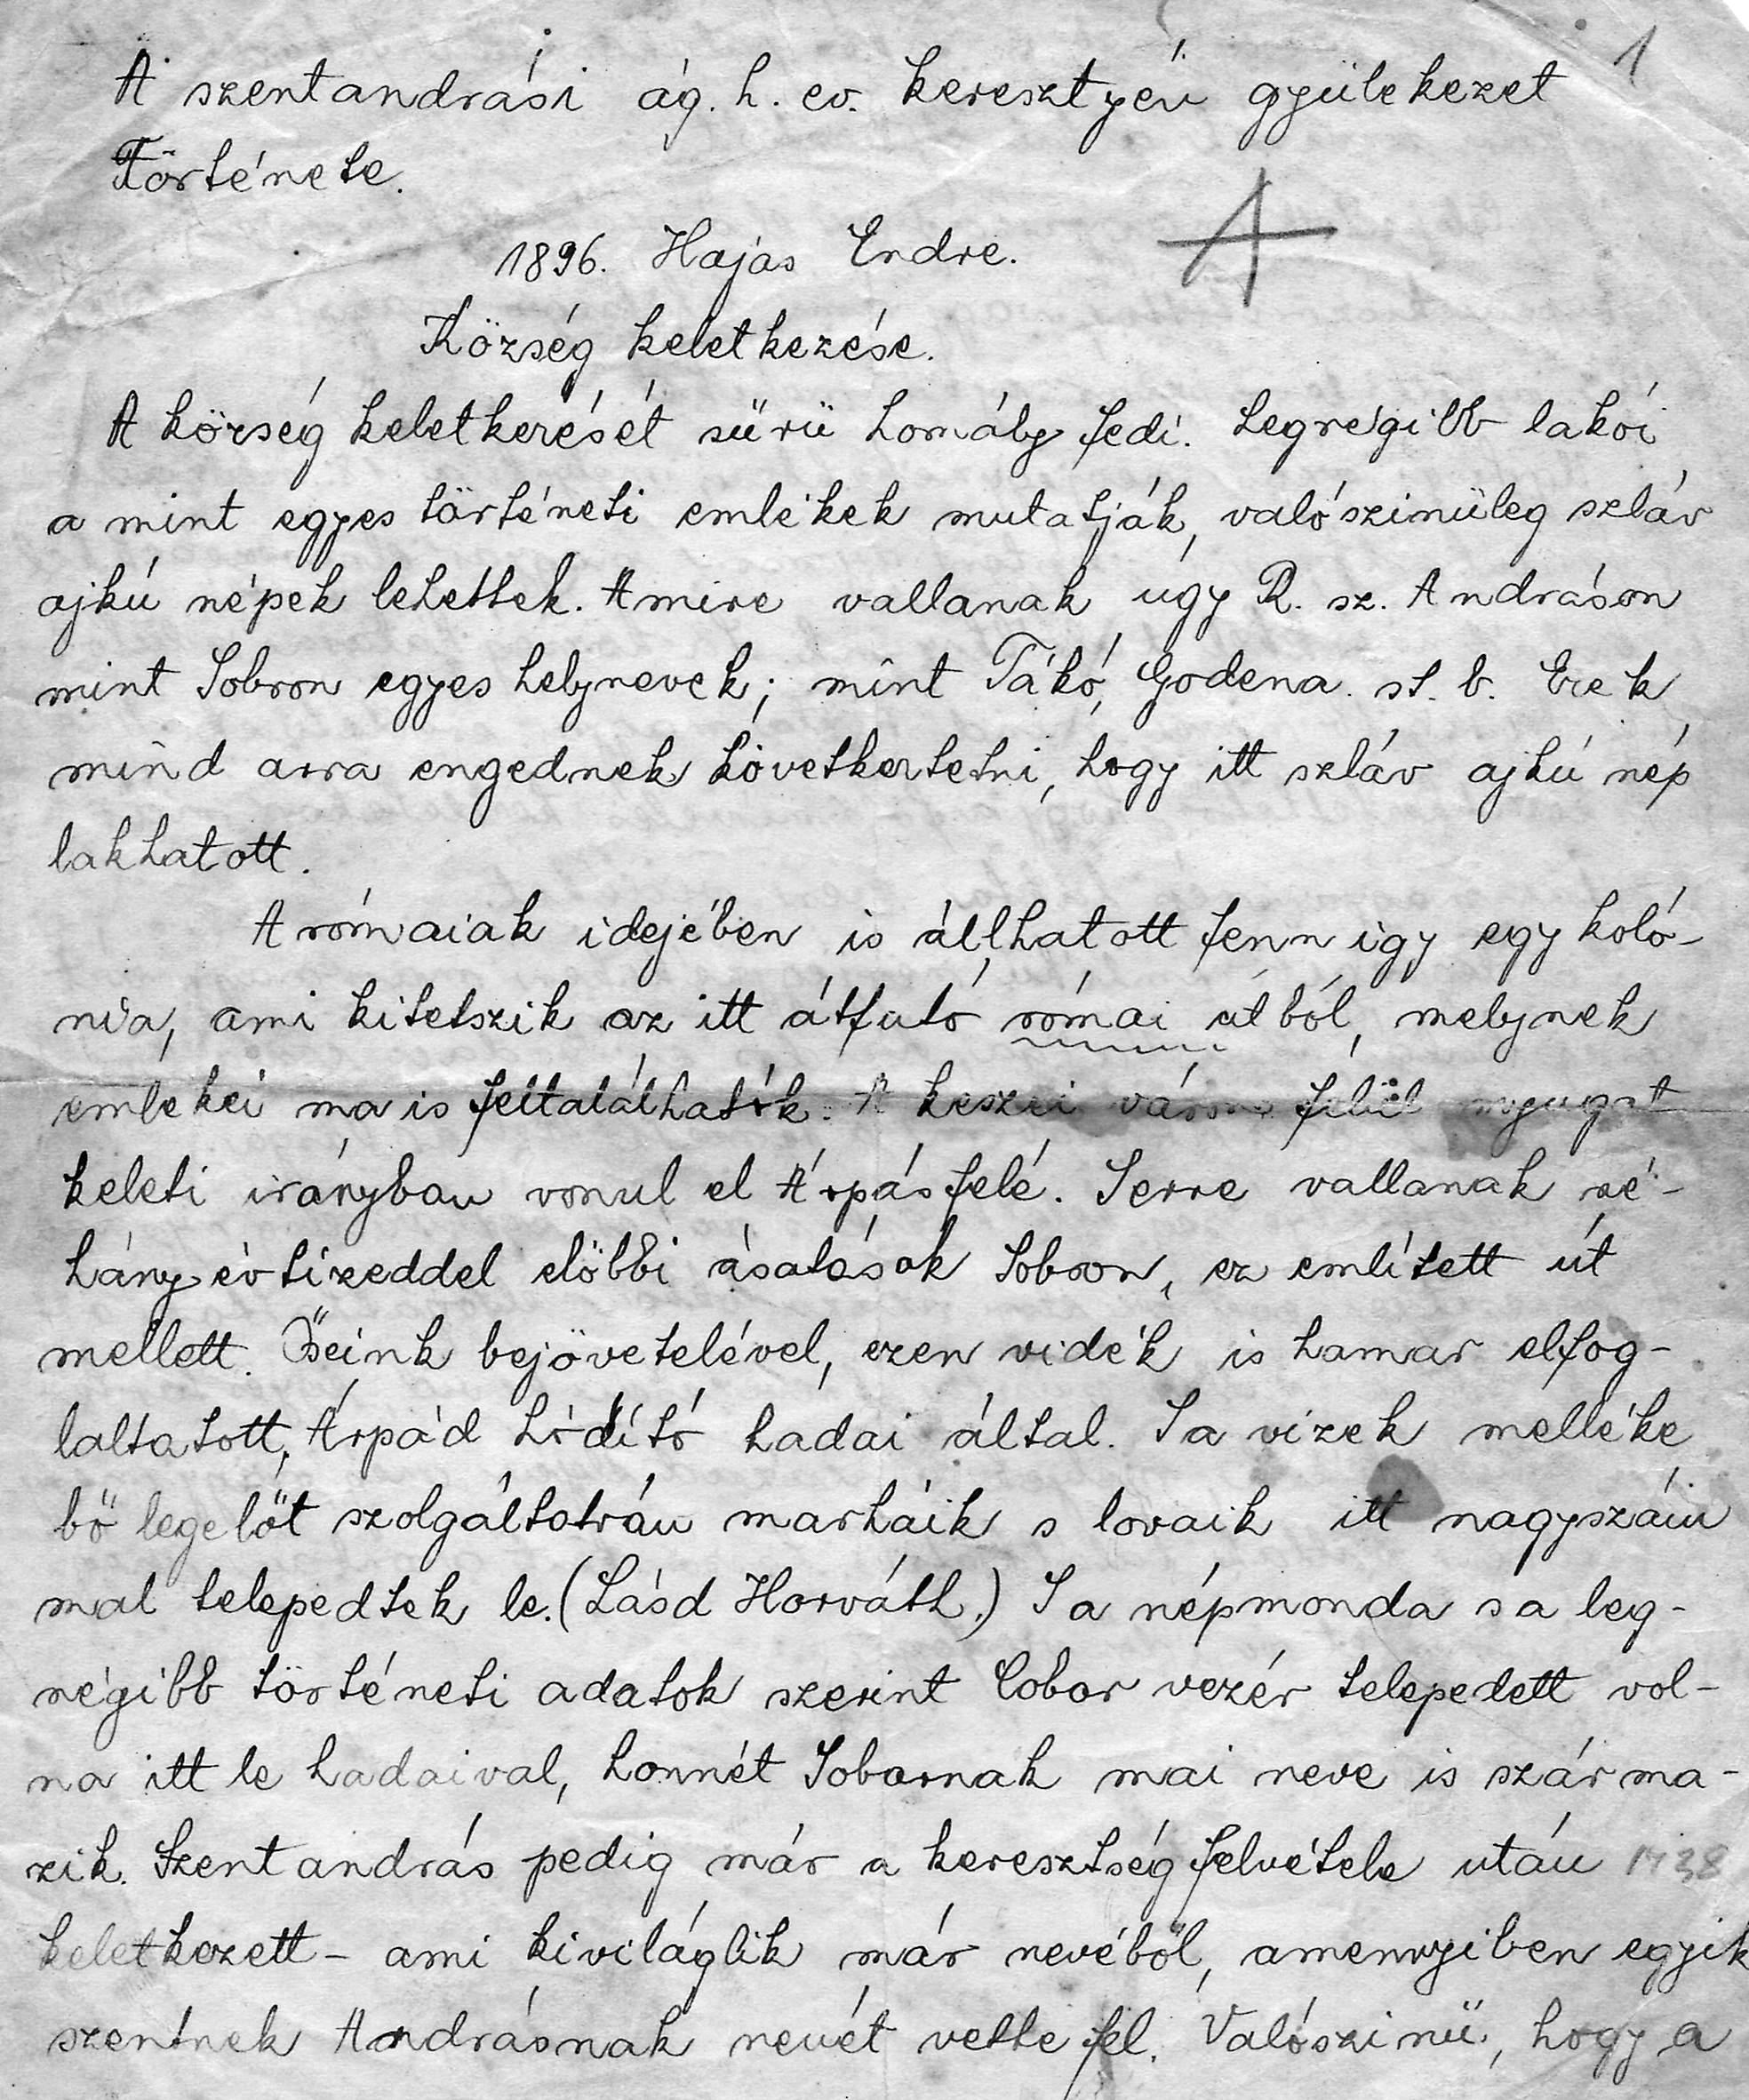 1
A szentandrási ág. h. ev. keresztyén gyülekezet
Története.
1896. Hajas Endre.
Község keletkezése.
A község keletkezését sűrü homály fedi. Legrégibb lakói
a mint egyes történeti emlékek mutatják, valószinüleg szláv
ajkú népek lehettek. Amire vallanak úgy R. sz. Andráson
mint Sobron egyes helynevek; mint Tákó, Godena. st. b. Ezek
mind arra engednek következtetni, hogy itt szláv ajkú nép
lakhatott.
A rómaiak idejében is állhatott fenn igy egy koló-
nia, ami kitetszik az itt átfutó római útból, melynek
emlékei ma is feltalálhatók. A keszei város felül nyugat
keleti irányban vonul el Árpás felé. S erre vallanak né-
hány évtizeddel előbbi ásatások Sobron, ez említett út
mellett. Őseink bejövetelével, ezen vidék is hamar elfog-
laltatott, Árpád hódító hadai által. S a vizek melléke
bő legelőt szolgáltatván marháik s lovaik itt nagyszám
mal telepedtek le. (Lásd Horváth.) S a népmonda s a leg-
régibb történeti adatok szerint Cobor vezér telepedett vol-
na itt le hadaival, honnét Sobornak mai neve is szárma-
zik. Szentandrás pedig már a keresztség felvétele után
keletkezett - ami kiviláglik már nevéből, amennyiben egyik
szentnek Andrásnak nevét vette fel. Valószinű, hogy a